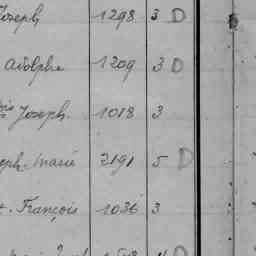 Joseph 1298 3 D
Adolphe 1209 3 D
Joseph 1018 3
eph-Marie 2191 5 D
François 1036 3